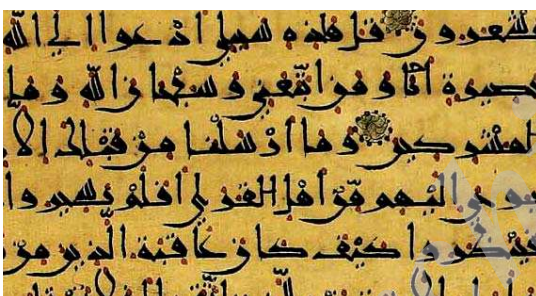 يشعرون قل هذه سبيلي ادعوا الى الله
بصيرة انا ومن اتبعني وسبحن الله وما
المشركين وما ارسلنا من قبلك الا
نوحي اليهم من اهل القرى افلم يسيروا
فينظروا كيف كان عاقبة الذين من